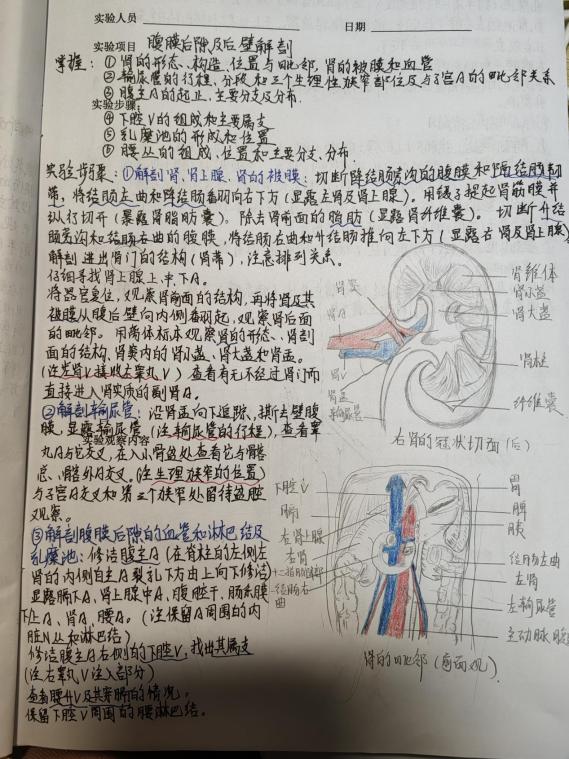 实验人员
日期
实验项目 腹膜后隙及后壁解剖
掌握：① 肾的形态、构造、位置与毗邻,肾的被膜和血管
② 输尿管的行程、分段和三个生理性狭窄部位及与子宫A的毗邻关系
③ 腹主A的起止、主要分支及分布.
实验步骤：
④ 下腔V的组成和主要属支
⑤ 乳糜池的形成和位置
⑥ 腰丛的组成、位置和主要分支、分布.
实验步骤：①解剖肾,肾上腺、肾的被膜：切断降结肠旁沟的腹膜和膈结肠韧
带，将结肠左曲和降结肠翻向右下方（显露左肾及肾上腺）。用镊子提起肾筋膜并
纵行切开（暴露肾脂肪囊）。除去肾前面的脂肪（显露肾纤维囊）。切断升结
肠旁沟和结肠右曲的腹膜，将结肠右曲和升结肠推向左下方（显露右肾及肾上腺）
解剖进出肾门的结构（肾蒂），注意排列关系。
仔细寻找肾上腺上.中.下A。
将器官复位，观察肾前面的结构，再将肾及其
被膜从腹后壁向内侧翻起，观察肾后面
的毗邻。用离体标本观察肾的形态、肾剖
面的结构、肾窦内的肾小盏、肾大盏和肾盂。
（左肾V接收左睾丸V）查看有无不经过肾门而
直接进入肾实质的副肾A。
②解剖输尿管：沿肾盂向下追踪，撕去壁腹
膜，显露输尿管（注输尿管的行程），查看睾
实验观察内容
丸A与它交叉，在入小骨盆处查看它与髂
总、髂外A交叉。（注生理狭窄的位置）
与子宫A交叉和第三个狭窄处留待盆腔
观察。
③解剖腹膜后隙的血管和淋巴结及
乳糜池：修洁腹主A（在脊柱的左侧左
肾的内侧自主A裂孔下方由上向下修洁）
显露膈下A、肾上腺中A、腹腔干、肠系膜
下上A、肾A、腰A。（注保留A周围的内
脏N丛和淋巴结）
修洁腹主A右侧的下腔V，找出其属支
（注右睾丸V注入部分）
查看腰升V及其穿膈的情况。
保留下腔V周围的腰淋巴结。
肾窦
肾A
肾V
肾盂
输尿管
肾锥体
肾小盏
肾大盏
肾柱
纤维囊
右肾的冠状切面（后）
下腔V
膈
右肾上腺
右肾
十二指肠降部
结肠右
曲
胃
脾
胰
结肠左曲
左肾
左输尿管
主动脉腹部
肾的毗邻（前面观）